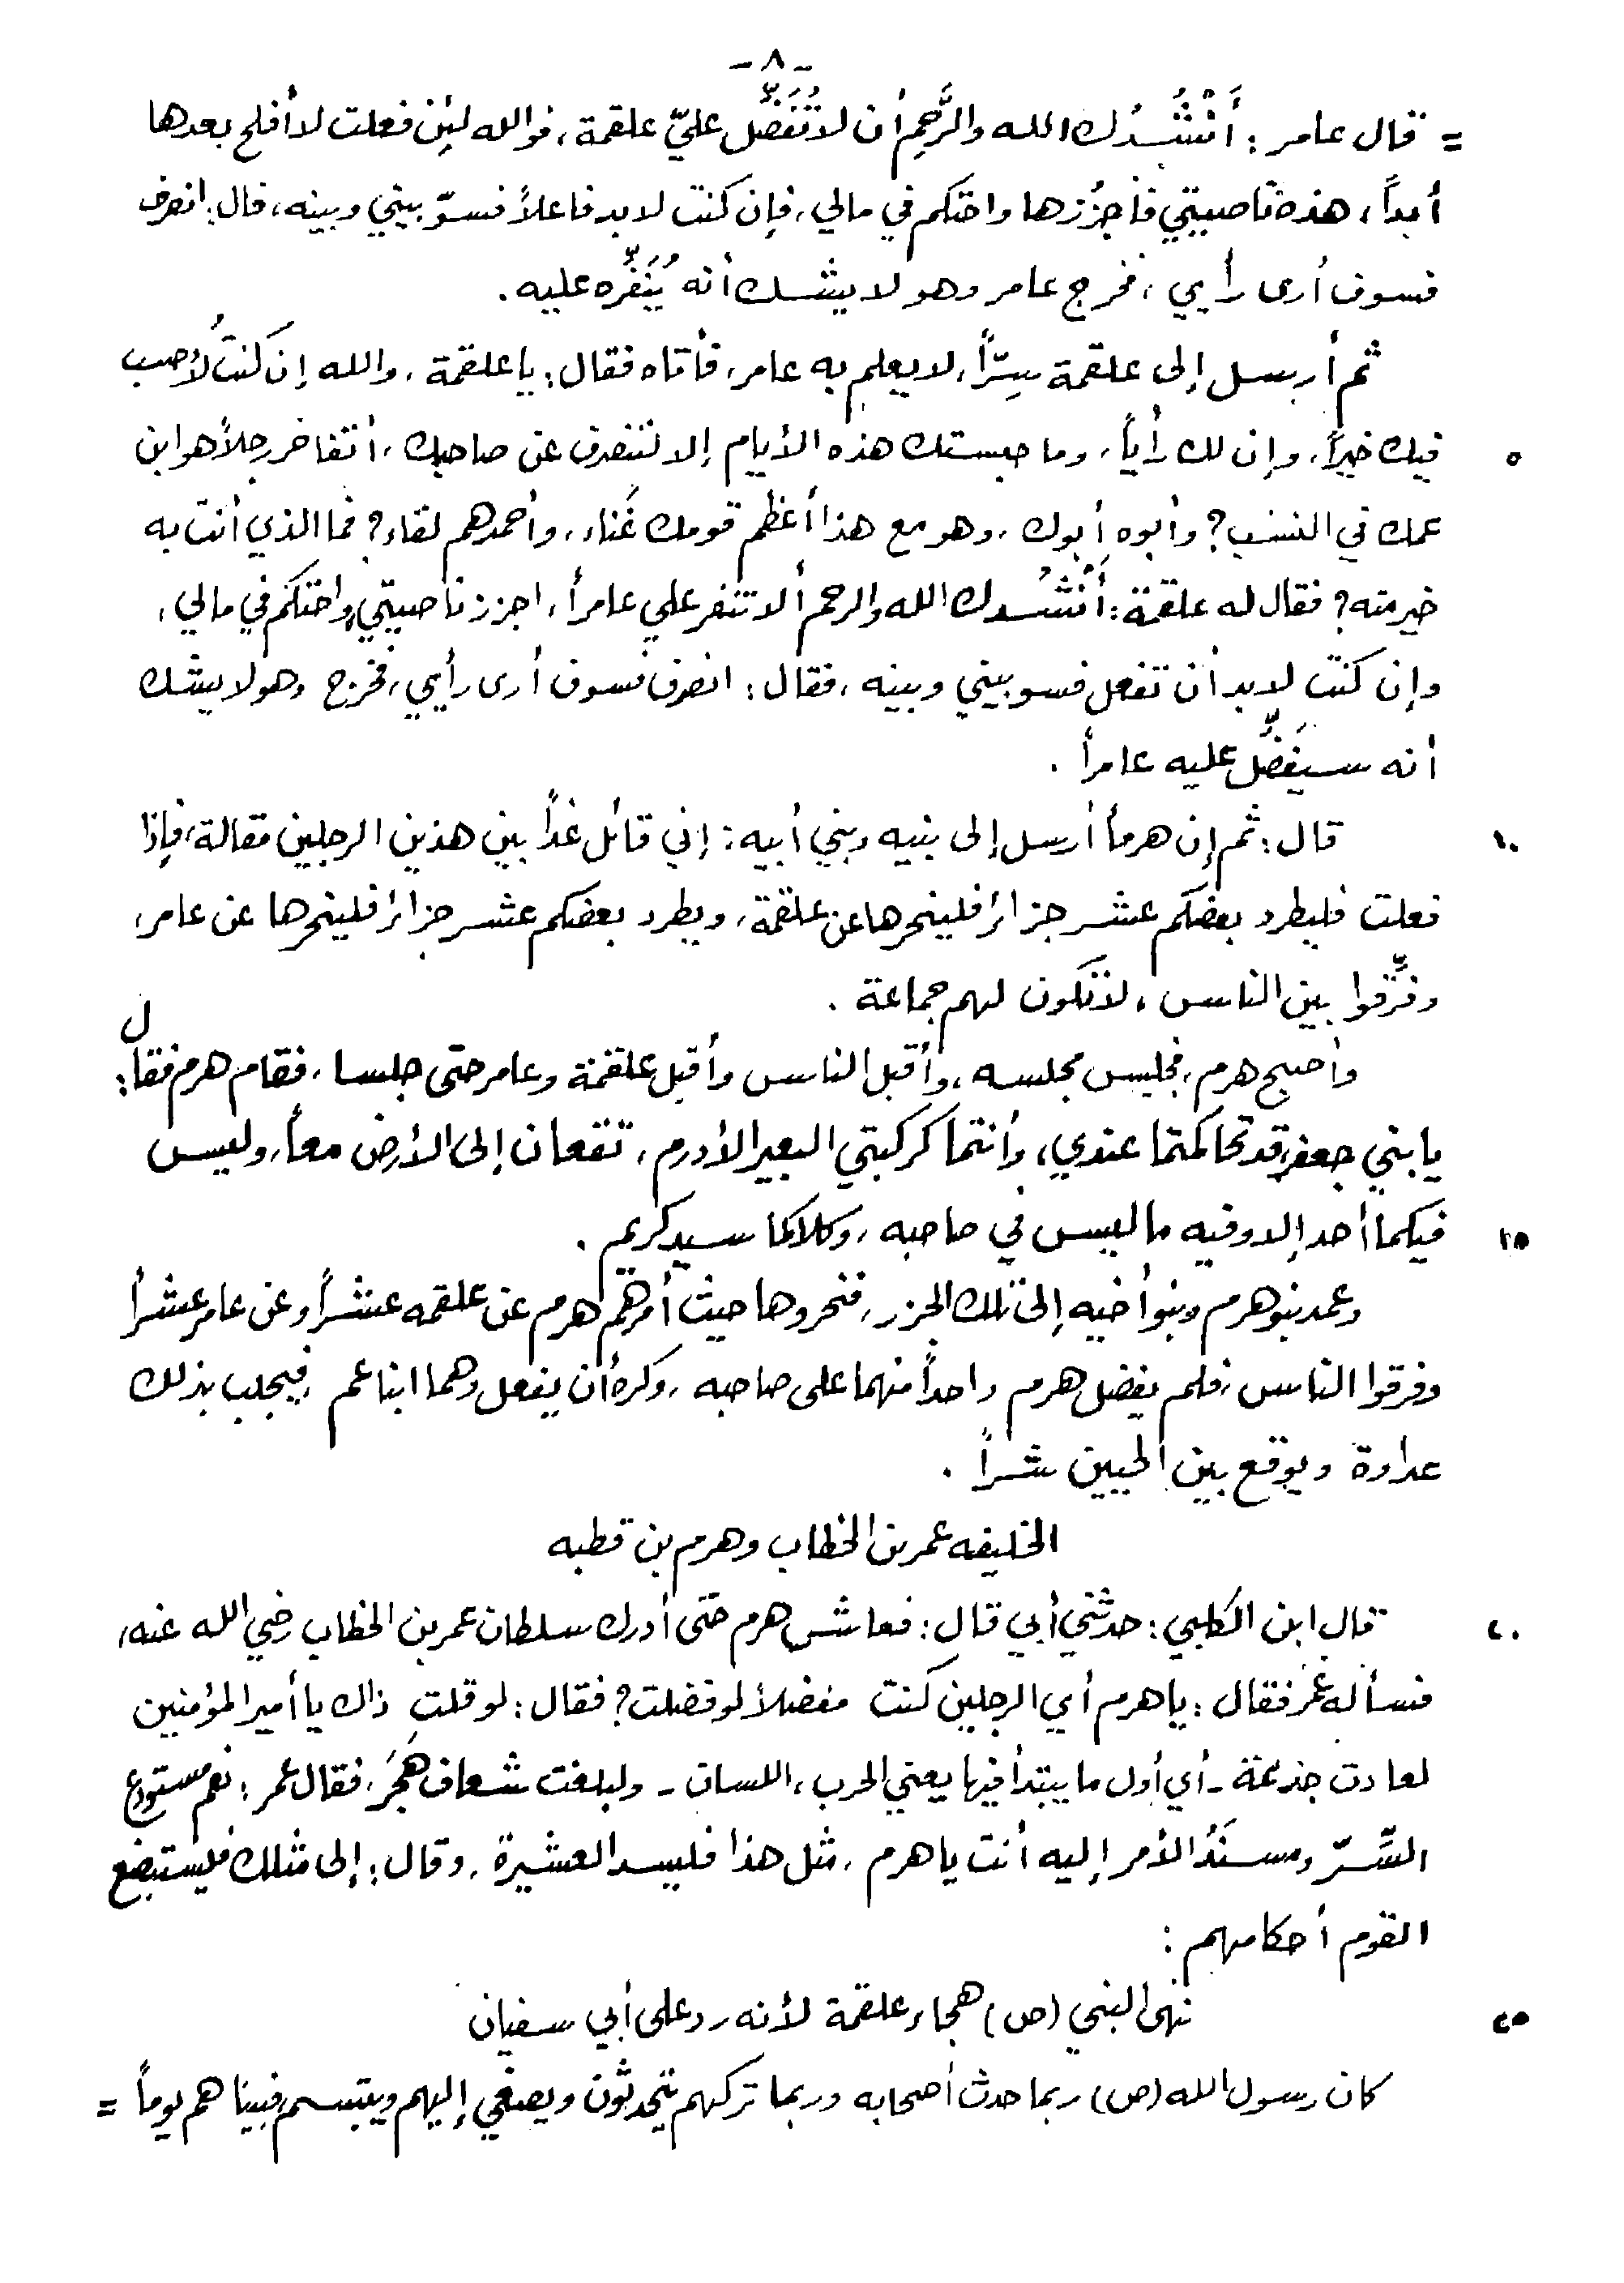 -٨-
= قال عامر : أَنْشُدُك الله والرَّحِمِ أن لا تُفَضِّل عليّ علقمة، فوالله لئِن فعلت لا أفلح بعدها
أبداً، هذه ناصيتي فاجْزُزها واحتكم في مالي، فإن كنت لابد فاعلاً فسوّ بيني وبينه، قال: انصرف
فسوف أرى رأيي، فخرج عامر وهو لا يشك أنه يُنَفِّره عليه .
ثم أرسل إلى علقمة سِرّاً، لا يعلم به عامر، فأتاه فقال: يا علقمة، والله إن كنتُ لأحسب
٥ فيك خيراً، وإن لك رأياً، وما حبستك هذه الأيام إلا لتنصرف عن صاحبك، أتفاخر رجلاً هو ابن
عمك في النسب؟ وأبوه أبوك، وهو مع هذا أعظم قومك غَناء، وأحمدهم لقاء؟ فما الذي أنت به
خير منه؟ فقال له علقمة: أَنْشُدك الله والرحم ألا تنفر علي عامراً، اجزز ناصيتي واحتكم في مالي،
وإن كنت لابد أن تفعل فسو بيني وبينه، فقال: انصرف فسوف أرى رأيي، فخرج وهو لا يشك
أنه سيفَضِّل عليه عامراً .
١٠ قال: ثم إن هرماً أرسل إلى بنيه وبني أبيه: إني قائل غداً بين هذين الرجلين مقالة، فإذا
فعلت فليطرد بعضكم عشر جزائر فلينحرها عن علقمة، ويطرد بعضكم عشر جزائر فلينحرها عن عامر،
وفرِّقوا بين الناس، لا تكون لهم جماعة .
وأصبح هرم، فجلس مجلسه، وأقبل الناس وأقبل علقمة وعامر حتى جلسا، فقام هرم فقال:
يا بني جعفر قد تحاكمتما عندي، وأنتما كركبتي البعير الأدرم، تقعان إلى الأرض معاً، وليس
١٥ فيكما أحد إلا وفيه ما ليس في صاحبه، وكلاكما سيد كريم .
وعمد بنو هرم وبنو أخيه إلى تلك الجزر، فنحروها حيث أمرهم هرم عن علقمه عشراً وعن عامر عشراً
وفرقوا الناس، فلم يفضل هرم واحداً منهما على صاحبه، وكره أن يفعل وهما ابنا عم، فيجلب بذلك
عداوة ويوقع بين الحيين شراً .
الخليفه عمر بن الخطاب وهرم بن قطبه
٢٠ قال ابن الكلبي: حدثني أبي قال: فعاش هرم حتى أدرك سلطان عمر بن الخطاب رضي الله عنه،
فسأله عمر فقال: يا هرم أي الرجلين كنت مفضلاً لو فضلت؟ فقال: لو قلت ذاك يا أمير المؤمنين
لعادت جذعة - أي أول ما يبتدأ فيها يعني الحرب، اللسان - ولبلغت شعاف هَجَرَ، فقال عمر: نعم مستودع
السِّرّ ومسنَدُ الأمر إليه أنت يا هرم، مثل هذا فليسد العشيرة، وقال: إلى مثلك فليستبضع
القوم أحكامهم :
٢٥ نهى النبي (ص) هجاء علقمة لأنه رد على أبي سفيان
كان رسول الله (ص) ربما حدث أصحابه وربما تركهم يتحدثون ويصغي إليهم ويتبسم فبينا هم يوماً =